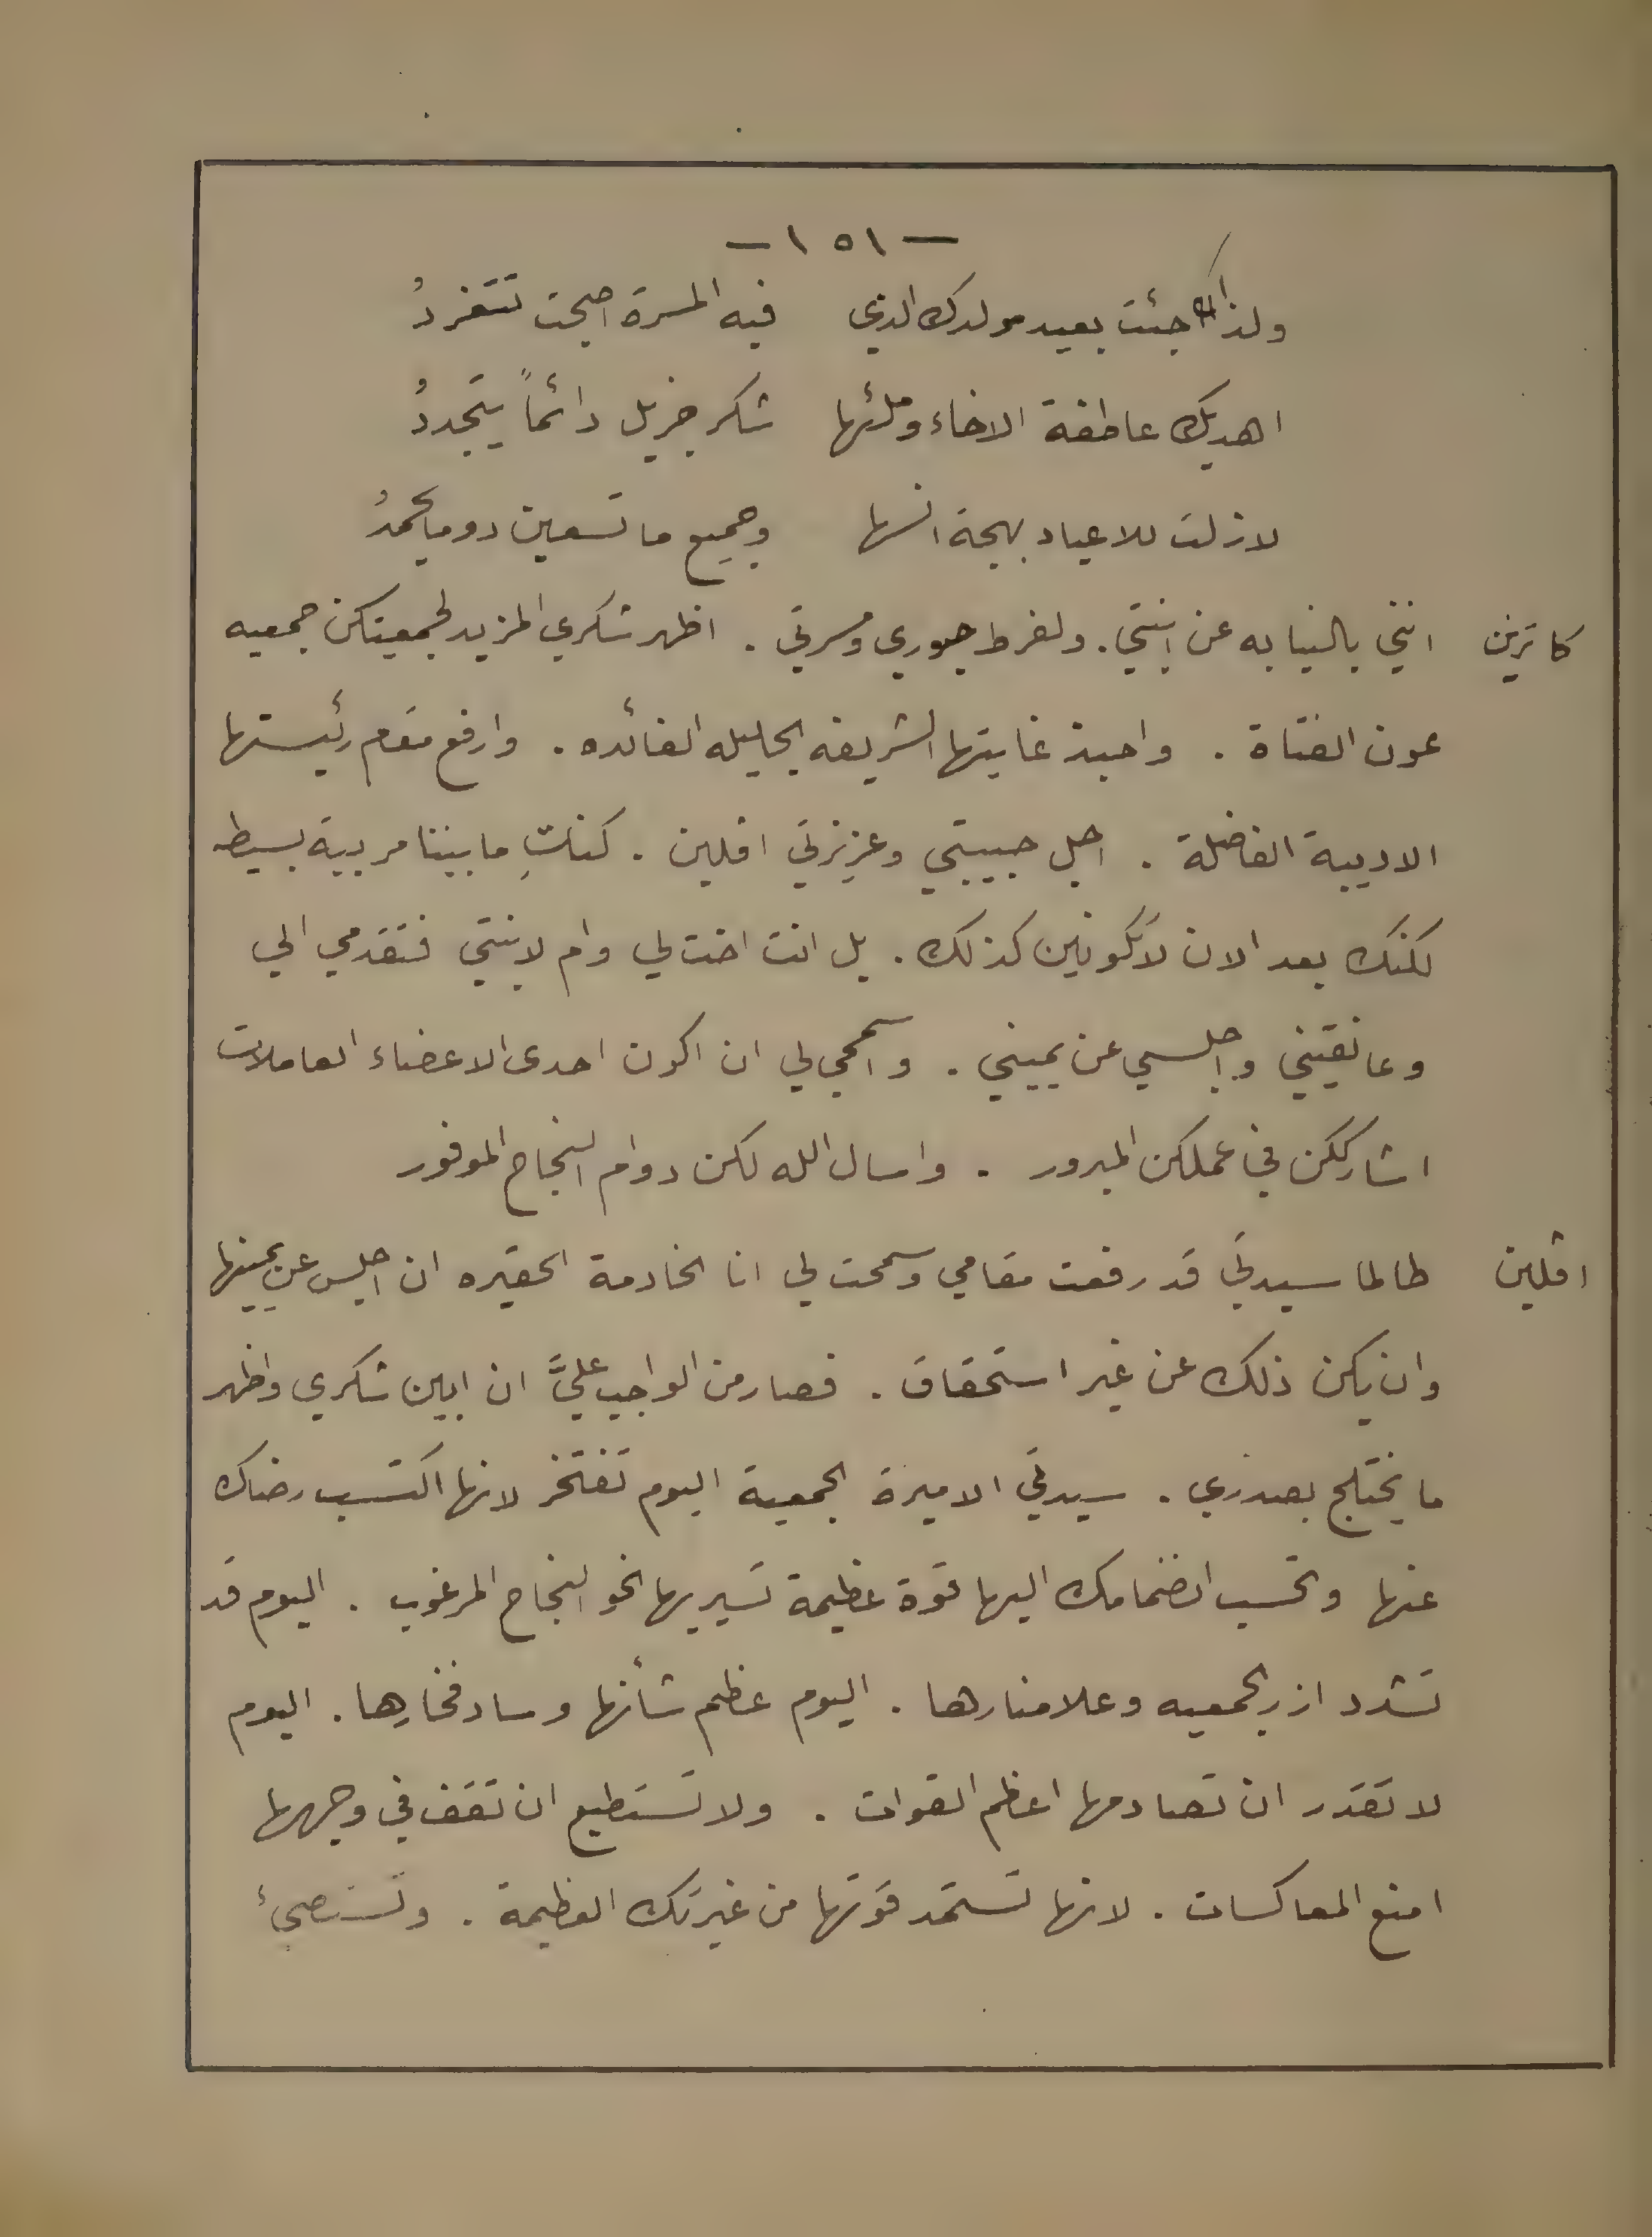 — ١٥١ —
ولذاك جئت بعيد مولدك الذي فيه المسرة اصبحت تتغردُ
اهديك عاطفة الاخاء وملئها شكر جزيل دائماً يتجددُ
لا زلت للاعياد بهجة انسها وجميع ما تسعين دوما يحمدُ
كاترين انني بالنيابه عن ابنتي. ولفرط حبوري ومسرتي . اظهر شكري المزيد لجمعيتكن جمعيه
عون الفتاة . واحبذ غايتها الشريفه الجليله الفائده . وارفع مقام رئيستها
الاديبة الفاضلة . اجل حبيبتي وعزيزتي اقلين . كنتِ ما بيننا مربية بسيطه
لكنك بعد الان لا تكونين كذلك . بل انت اخت لي وام لابنتي فتقدمي الي
وعانقيني واجلسي عن يميني . واسمحي لي ان اكون احدى الاعضاء العاملات
اشارككن في عملكن المبرور . واسال الله لكن دوام النجاح الموفور
اقلين طالما سيدتي قد رفعت مقامي وسمحت لي انا الخادمة الحقيره ان اجلس عن يمينها
وان يكن ذلك عن غير استحقاق . فصار من الواجب عليَّ ان ابين شكري واظهر
ما يختلج بصدري . سيدتي الاميرة الجمعية اليوم تفتخر لانها اكتسب رضاك
عنها وتحسب انضمامك اليها قوة عظيمة تسير بها نحو النجاح المرغوب . اليوم قد
تشدد ازر الجمعيه وعلا منارها . اليوم عظم شأنها وساد فخارها . اليوم
لا تقدر ان تصادمها اعظم القوات . ولا تستطيع ان تقف في وجهها
امنع المعاكسات . لانها تستمد قوتها من غيرتك العظيمة . وتستضيئ